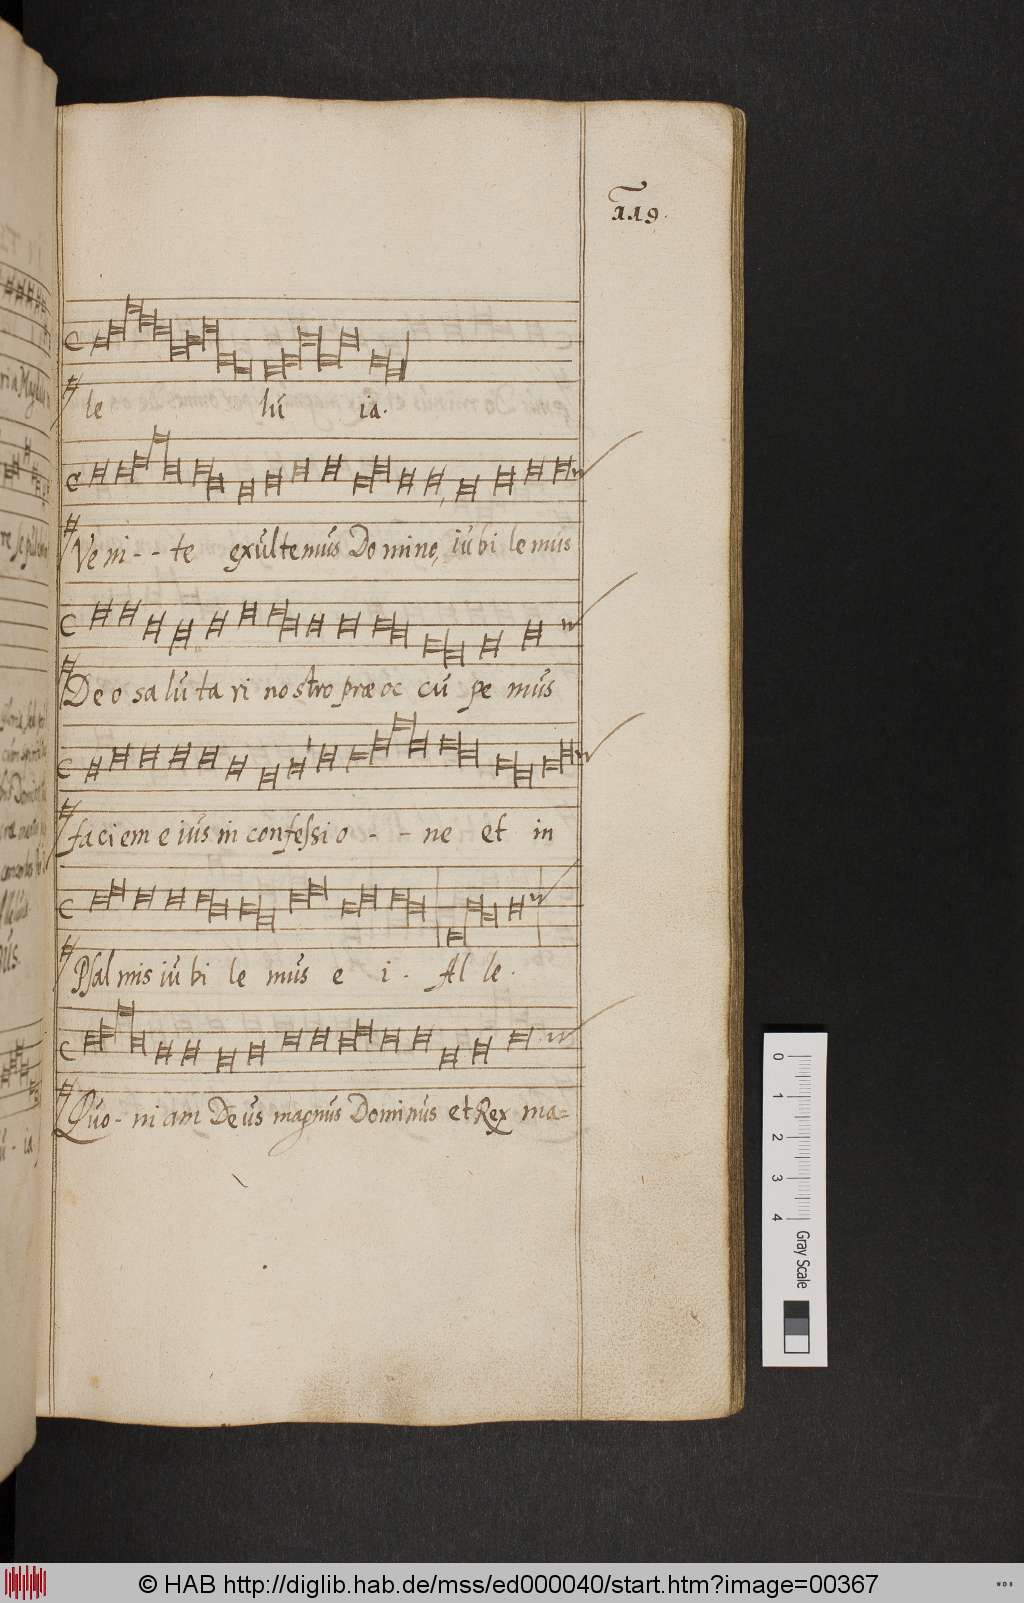 119.
le lu ia.
Ve ni - - te exultemus Do mino, iubi lemus
De o sa lu ta ri nostro præ oc cu pe mus
faciem e ius in confessi o - - ne et in
Psal mis iu bi le mus e i. Al le.
Quo - ni am De us magnus Dominus et Rex ma=
0 1 2 3 4 Gray Scale
© HAB http://diglib.hab.de/mss/ed000040/start.htm?image=00367